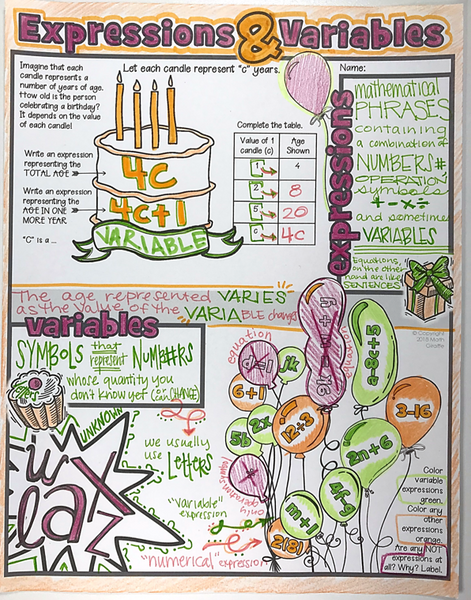 Expressions & Variables
Imagine that each
candle represents a
number of years of age.
How old is the person
celebrating a birthday?
It depends on the value
of each candle!
Let each candle represent "c" years.
Name:
Write an expression
representing the
TOTAL AGE
4c
Write an expression
representing the
AGE IN ONE
MORE YEAR
4c+1
"C" is a ...
VARIABLE
Complete the table.
Value of 1
candle (c)
Age
Shown
1
4
2
8
5
20
c
4C
expressions
mathematical
PHRASES
containing
a combination of
NUMBERS#
OPERATION
symbols
+ - × ÷
and sometimes
VARIABLES
Equations,
on the other
hand are like
SENTENCES
The age represented VARIES
as the value of the VARIABLE changes
© Copyright
2018 Math
Giraffe
variables
SYMBOLS that
represent NUMB#RS
whose quantity you
don't know yet (or can CHANGE)
UNKNOWN
w
x
l
a
z
we usually
use
Letters
"variable"
expression
"numerical" expression
equation
d=1
jk
6+1
2x
5b
12÷3
a-8c+5
3-16
2n+6
4f-9
m+1
2(8)
Color
variable
expressions
green.
Color any
other
expressions
orange.
Are any NOT
expressions at
all? Why? Label.